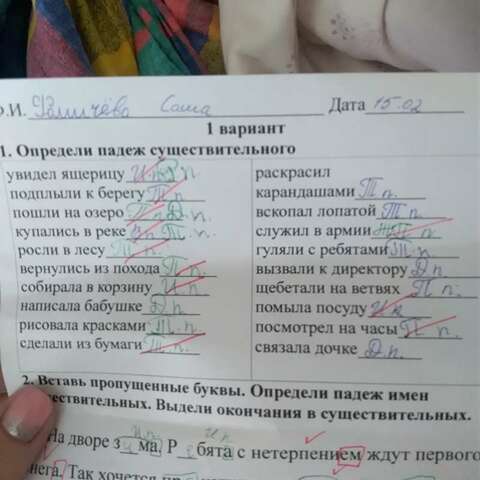 Ф.И. Саша Дата 15.02
1 вариант
1. Определи падеж существительного
увидел ящерицу И п.
подплыли к берегу Т п.
пошли на озеро Д п.
купались в реке Т п.
росли в лесу Т п.
вернулись из похода П п.
собирала в корзину И п.
написала бабушке Д п.
рисовала красками Т п.
сделали из бумаги Т п.
раскрасил
карандашами Т п.
вскопал лопатой Т п.
служил в армии П п.
гуляли с ребятами Т п.
вызвали к директору Д п.
щебетали на ветвях П п.
помыла посуду И п.
посмотрел на часы П п.
связала дочке Д п.
2. Вставь пропущенные буквы. Определи падеж имен
ществительных. Выдели окончания в существительных.
И п. И п.
На дворе з и ма. Р е бята с нетерпением ждут первого
нега. Так хочется